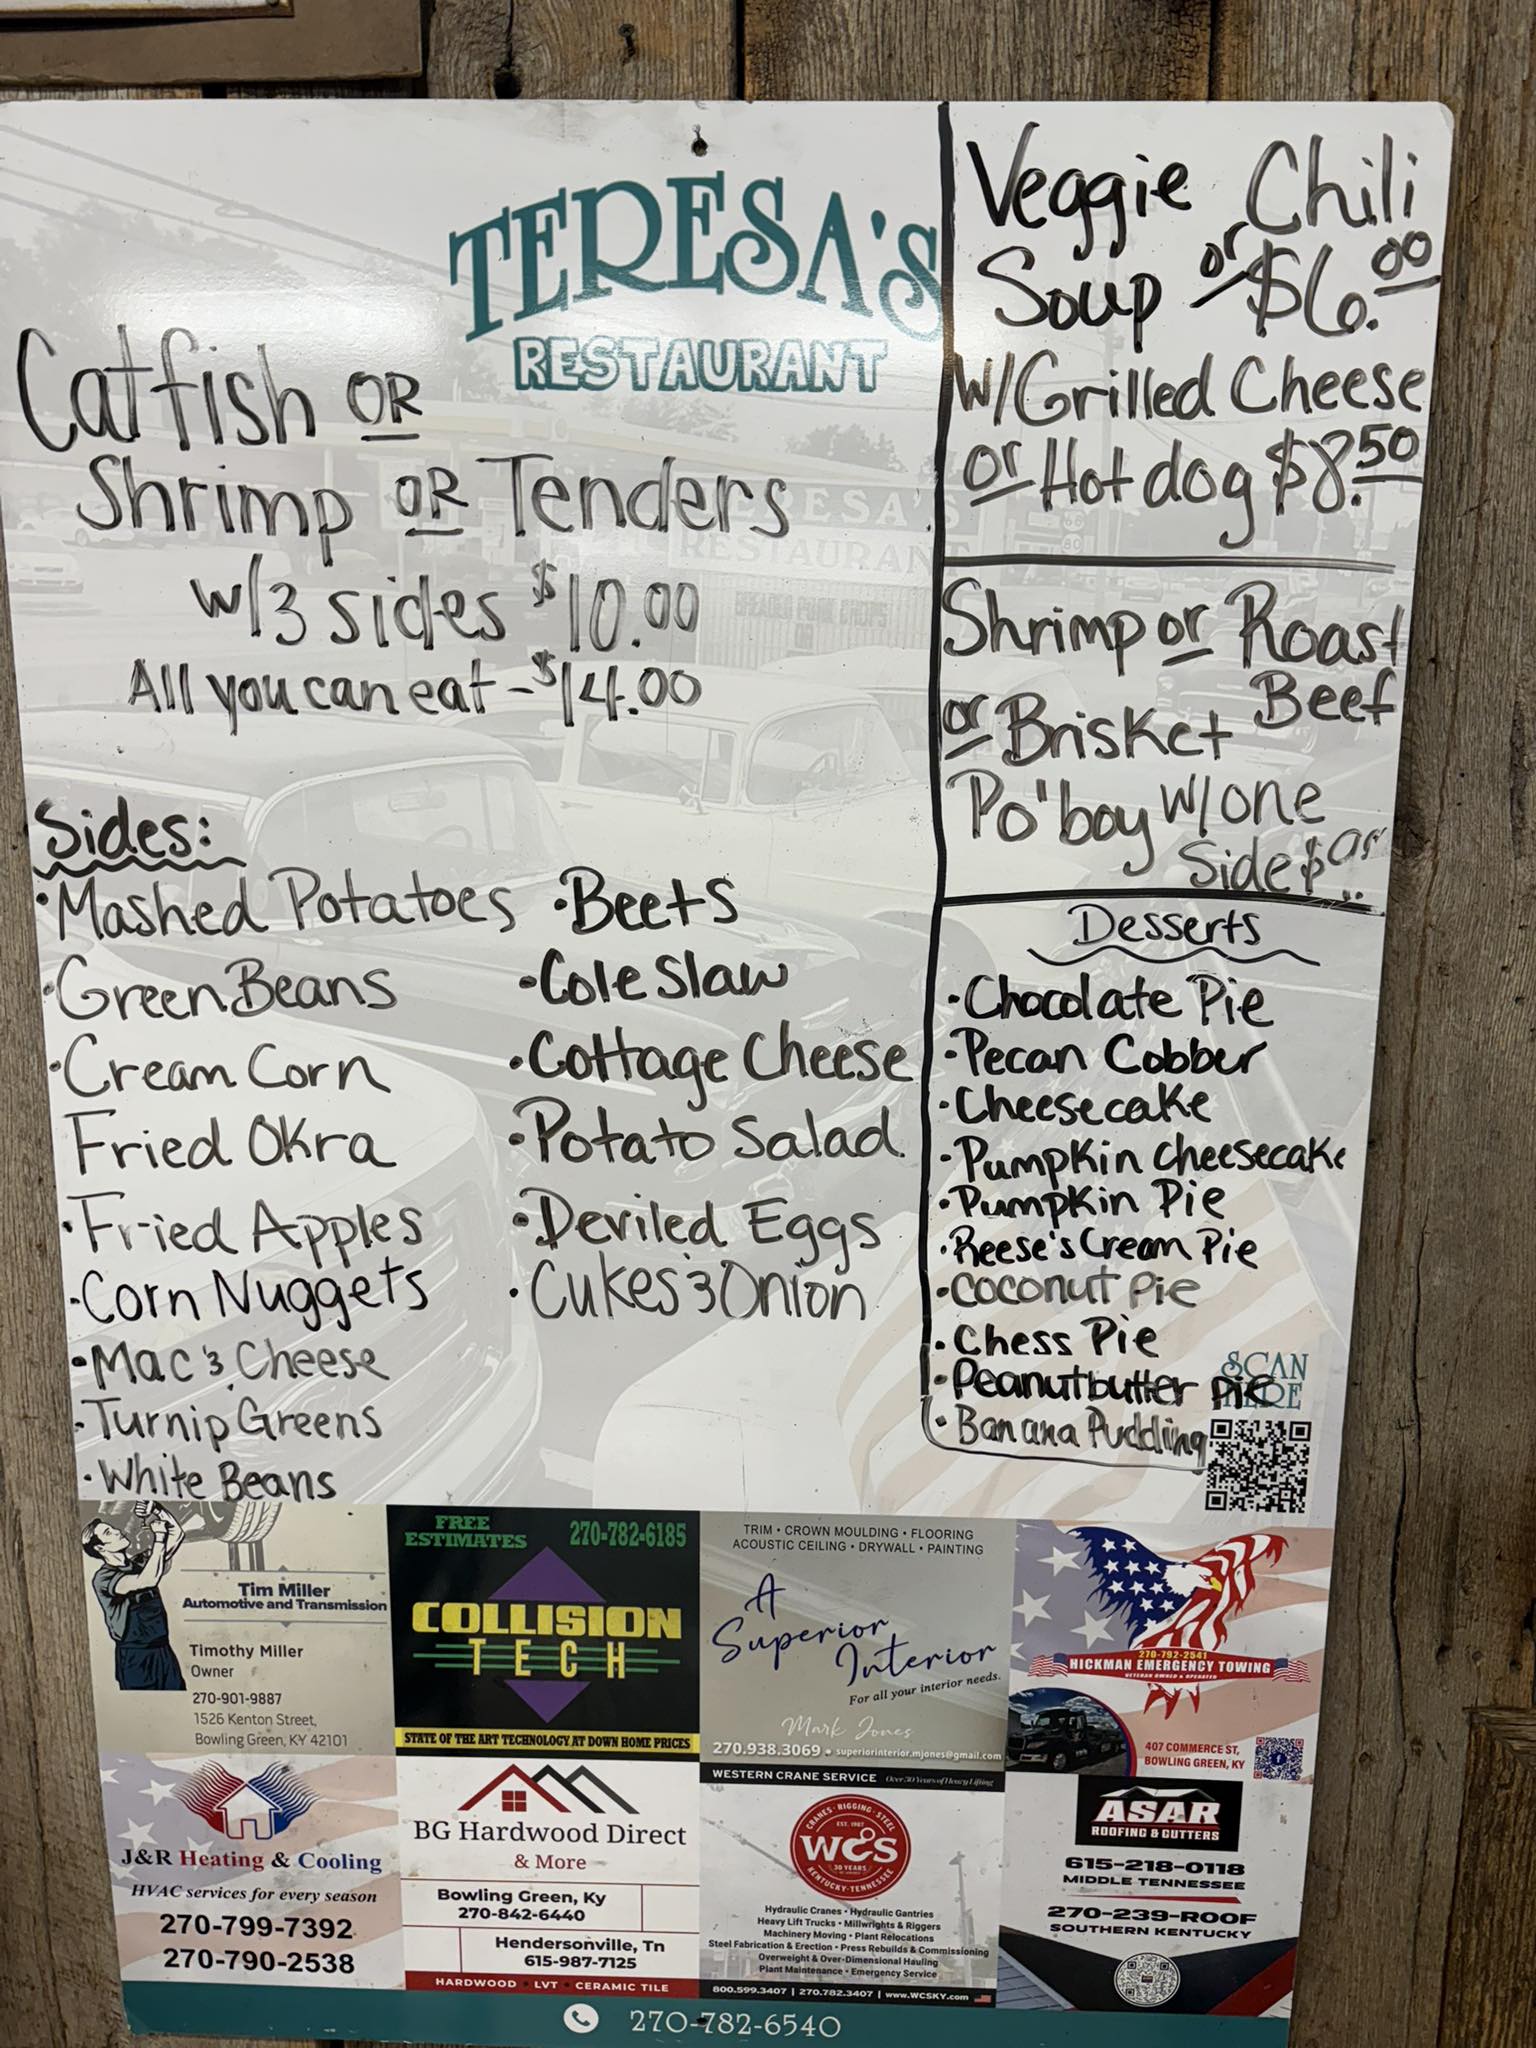 TERESA'S
RESTAURANT
Catfish OR
Shrimp OR Tenders
w/3 sides $10.00
All you can eat - $14.00
Sides:
• Mashed Potatoes
• Green Beans
• Cream Corn
Fried Okra
• Fried Apples
• Corn Nuggets
• Mac & Cheese
• Turnip Greens
• White Beans
• Beets
• Cole Slaw
• Cottage Cheese
• Potato Salad
• Deviled Eggs
• Cukes & Onion
Veggie or Chili
Soup $6.00
W/Grilled Cheese
or Hot dog $8.50
Shrimp or Roast
Beef
or Brisket
Po'boy w/one
Side $
Desserts
• Chocolate Pie
• Pecan Cobbler
• Cheesecake
• Pumpkin Cheesecake
• Pumpkin Pie
• Reese's Cream Pie
• Coconut Pie
• Chess Pie
• Peanutbutter Pie
• Banana Pudding
SCAN
HERE
TERESA'S
RESTAURANT
BREADED PORK CHOPS
Tim Miller
Automotive and Transmission
Timothy Miller
Owner
270-901-9887
1526 Kenton Street,
Bowling Green, KY 42101
FREE
ESTIMATES
270-782-6185
COLLISION
TECH
STATE OF THE ART TECHNOLOGY AT DOWN HOME PRICES
TRIM • CROWN MOULDING • FLOORING
ACOUSTIC CEILING • DRYWALL • PAINTING
A
Superior
Interior
For all your interior needs.
Mark Jones
270.938.3069 • superiorinterior.mjones@gmail.com
270-792-2541
HICKMAN EMERGENCY TOWING
VETERAN OWNED & OPERATED
407 COMMERCE ST,
BOWLING GREEN, KY
J&R Heating & Cooling
HVAC services for every season
270-799-7392
270-790-2538
BG Hardwood Direct
& More
Bowling Green, Ky
270-842-6440
Hendersonville, Tn
615-987-7125
HARDWOOD • LVT • CERAMIC TILE
WESTERN CRANE SERVICE Over 30 Years of Heavy Lifting
CRANES • RIGGING • STEEL
EST. 1987
WCS
30 YEARS
KENTUCKY-TENNESSEE
Hydraulic Cranes • Hydraulic Gantries
Heavy Lift Trucks • Millwrights & Riggers
Machinery Moving • Plant Relocations
Steel Fabrication & Erection • Press Rebuilds & Commissioning
Overweight & Over-Dimensional Hauling
Plant Maintenance • Emergency Service
800.599.3407 | 270.782.3407 | www.WCSKY.com
ASAR
ROOFING & GUTTERS
615-218-0118
MIDDLE TENNESSEE
270-239-ROOF
SOUTHERN KENTUCKY
270-782-6540